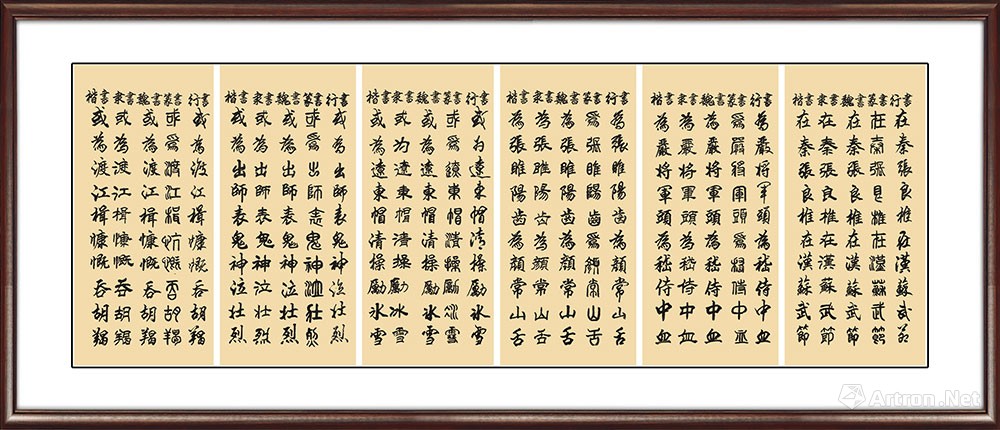 行書 在秦張良椎在漢蘇武節
篆書 在秦張良椎在漢蘇武節
魏書 在秦張良椎在漢蘇武節
隶書 在秦張良椎在漢蘇武節
楷書 在秦張良椎在漢蘇武節
行書 為嚴將軍頭為嵇侍中血
篆書 為嚴將軍頭為嵇侍中血
魏書 為嚴將軍頭為嵇侍中血
隶書 為嚴將軍頭為嵇侍中血
楷書 為嚴將軍頭為嵇侍中血
行書 為張睢陽齒為顏常山舌
篆書 為張睢陽齒為顏常山舌
魏書 為張睢陽齒為顏常山舌
隶書 為張睢陽齿為顏常山舌
楷書 為張睢陽齒為顏常山舌
行書 或為遼東帽清操勵冰雪
篆書 或為遼東帽清操勵冰雪
魏書 或為遼東帽清操勵冰雪
隶書 或为遼東帽清操勵冰雪
楷書 或為遼東帽清操勵冰雪
行書 或為出師表鬼神泣壯烈
篆書 或為出師表鬼神泣壯烈
魏書 或為出師表鬼神泣壯烈
隶書 或為出師表鬼神泣壯烈
楷書 或為出師表鬼神泣壯烈
行書 或為渡江楫慷慨吞胡羯
篆書 或為渡江楫慷慨吞胡羯
魏書 或為渡江楫慷慨吞胡羯
隶書 或為渡江楫慷慨吞胡羯
楷書 或為渡江楫慷慨吞胡羯
Artron.Net